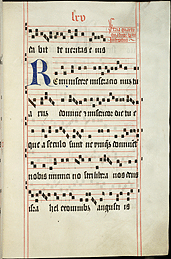 lxv
da bit te veritas e ius
Reminiscere miserationū tu
a rum domine et misericordie tu e
que a seculo sunt ne
nobis inimici nostri libera nos deus
isra hel ex omnibus angustiis